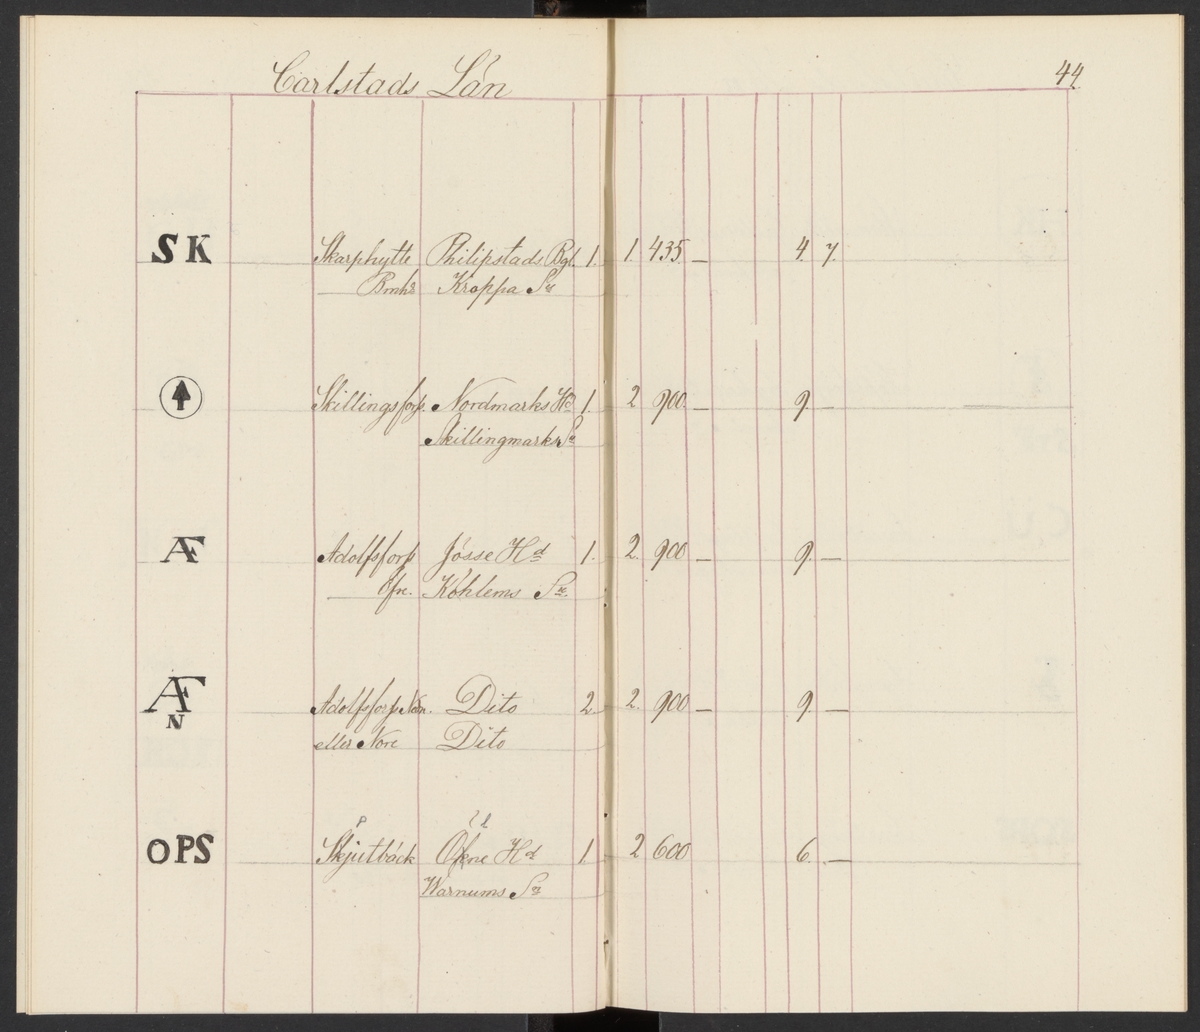 Carlstads Län 44.
SK Skarphytte Philipstads Bgl. 1. 1. 435 — 4. 7.
Bmhr Kroppa Sn
Skillingsfors Nordmarks Hd 1. 2 900. — 9. —
Skillingmarks Sn
AF Adolfsfors Jösse Hd 1. 2. 900 — 9. —
Öfre. Köhlems Sn.
AF Adolfsfors Dito 2 2. 900 — 9. —
N eller Nore Dito
OPS Skjutbäck Hd 1. 2 600 6. —
Warnums Sn